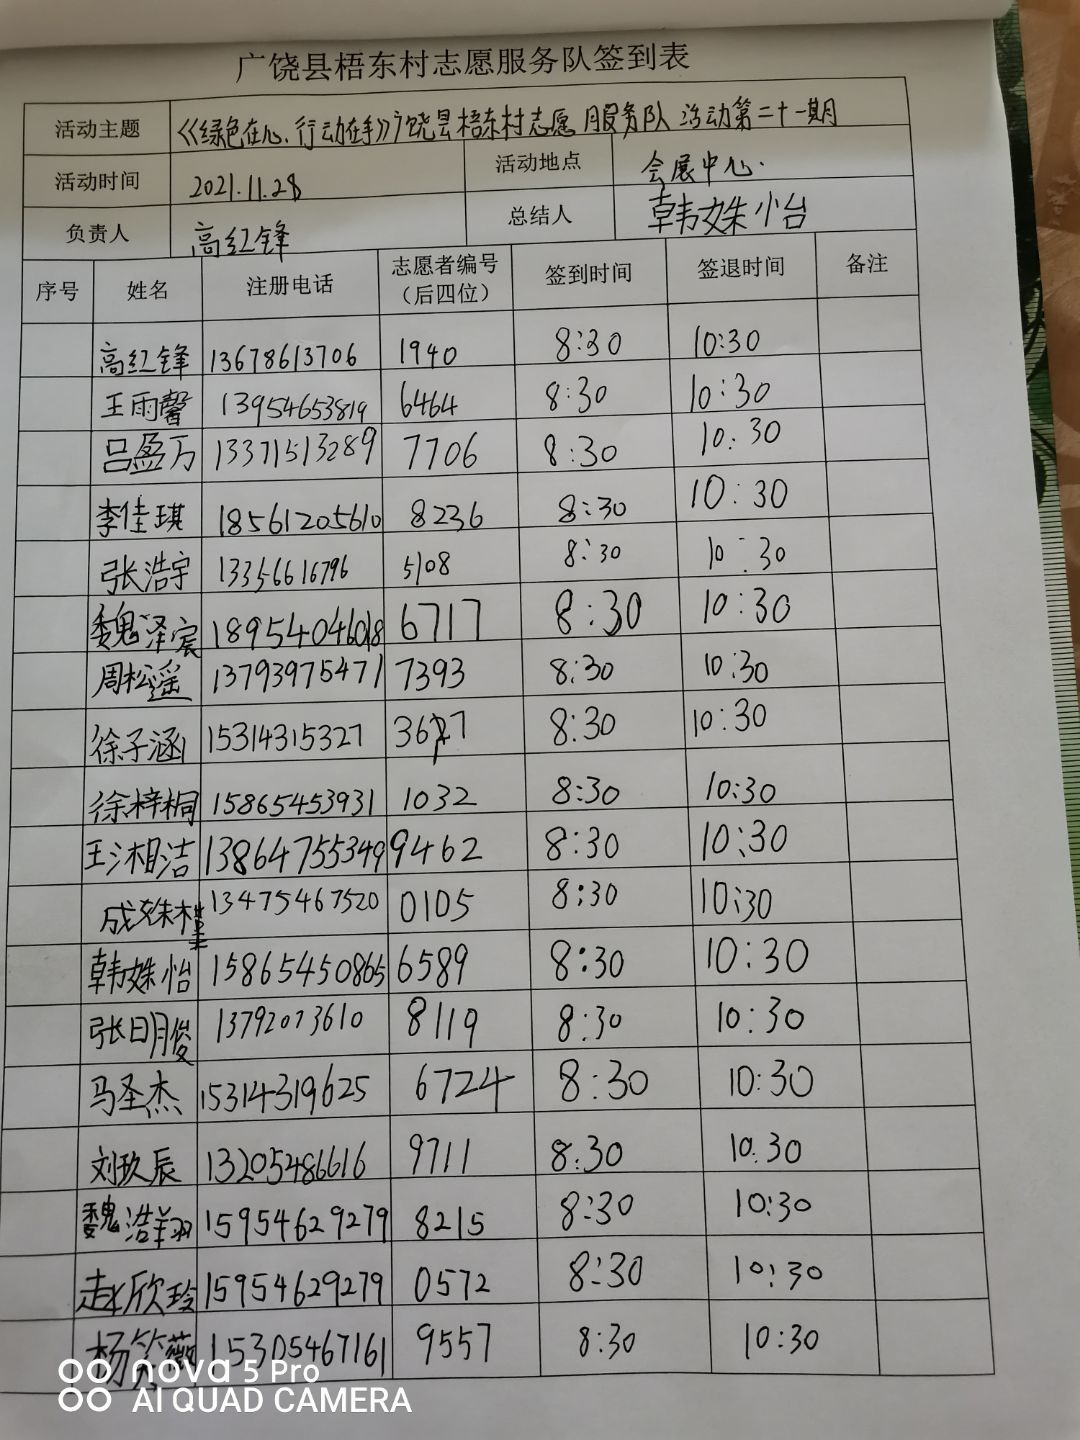 广饶县梧东村志愿服务队签到表
活动主题 《绿色在心、行动在手》广饶县梧东村志愿服务队活动第二十一期
活动时间 2021.11.28 活动地点 会展中心.
负责人 高红锋 总结人 韩姝怡
序号 姓名 注册电话 志愿者编号（后四位） 签到时间 签退时间 备注
高红锋 13678613706 1940 8:30 10:30
王雨馨 13954653819 6464 8:30 10:30
吕盈万 13371513289 7706 8:30 10:30
李佳琪 18561205610 8236 8:30 10:30
张浩宇 13356616796 5108 8:30 10:30
魏泽宸 6717 8:30 10:30
周松遥 13793975471 7393 8:30 10:30
徐子涵 15314315327 8:30 10:30
徐梓桐 15865453931 1032 8:30 10:30
王湘洁 13864755349 9462 8:30 10:30
成姝 13475467520 0105 8:30 10:30
韩姝怡 15865450865 6589 8:30 10:30
张明俊 13792073610 8119 8:30 10:30
马圣杰 15314319625 6724 8:30 10:30
刘玖辰 13205486616 9711 8:30 10:30
魏浩翔 15954629279 8215 8:30 10:30
赵欣玲 15954629279 0572 8:30 10:30
杨笑薇 15305467161 9557 8:30 10:30
nova 5 Pro
AI QUAD CAMERA